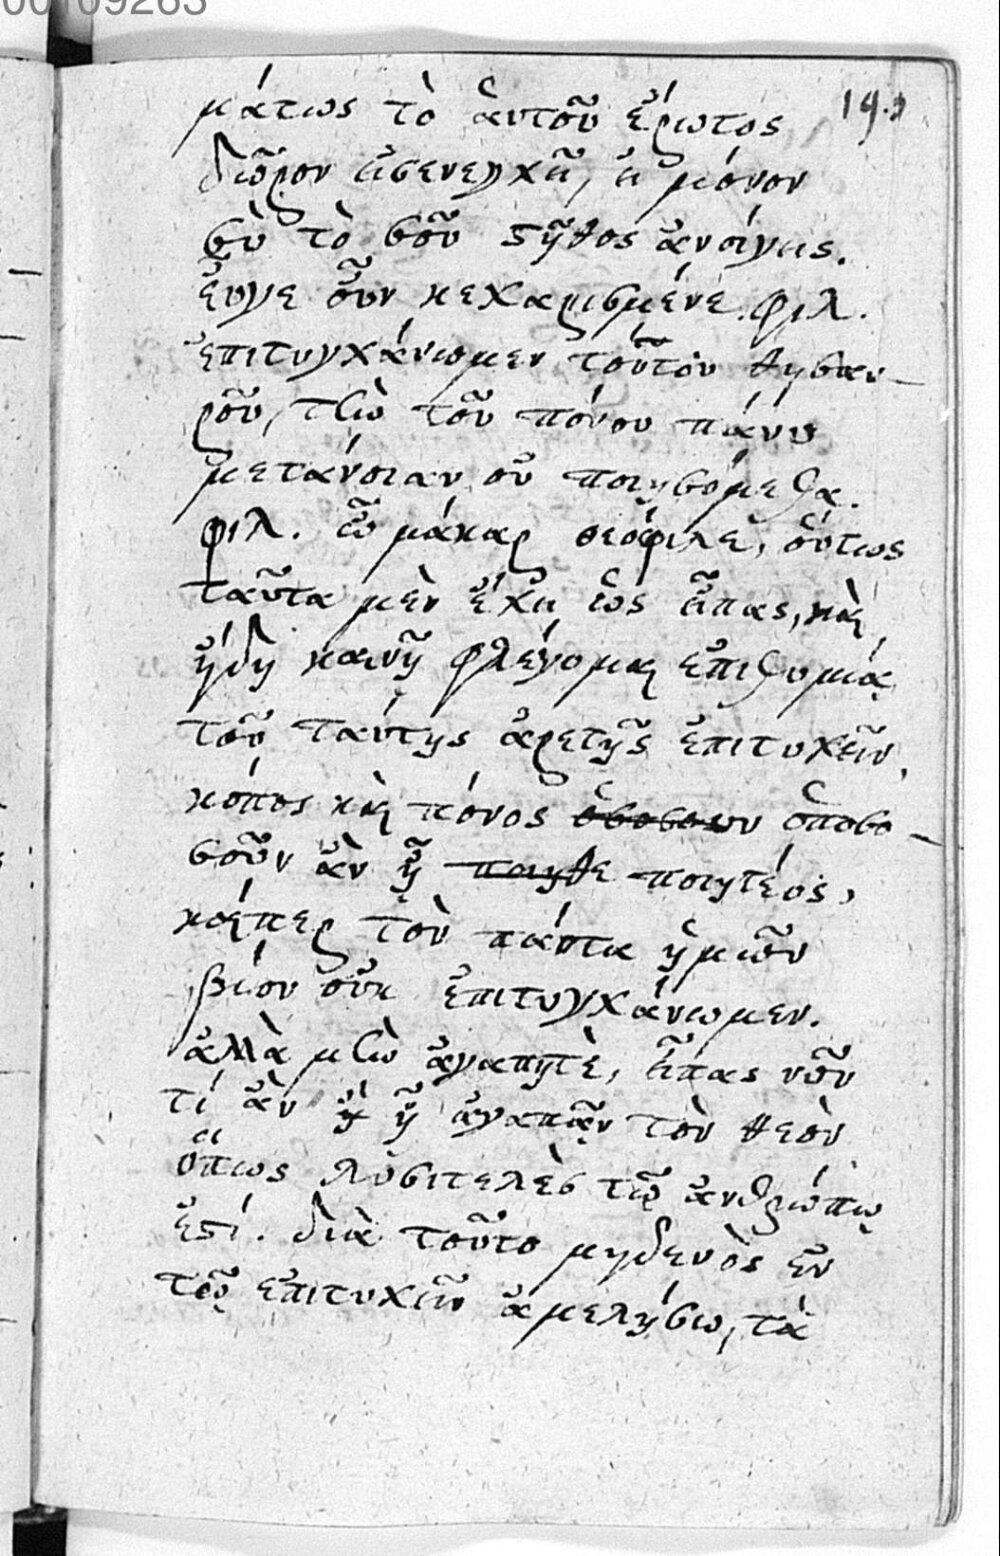 00109263
19.
μάτως τὸ ἁυτοῦ ἔρωτος
δῶρον εἰσενεγκῆ, εἰ μόνον
σὺ τὸ σοῦ στῆθος ἀνοίγεις.
ἔυγε οὖν κεχαρισμένε. φιλ.
ἐπιτυγχάνωμεν τούτου θησαυ-
ροῦ, τὴν τοῦ πόνου πάνυ
μετάνοιαν οὐ ποιησόμεθα.
φιλ. ὦ μάκαρ θεόφιλε, οὕτως
ταῦτα μὲν ἔχει ὡς εἶπας, καὶ
ἤδη καινῇ φλέγομαι ἐπιθυμίᾳ
τοῦ ταύτης ἀρετῆς ἐπιτυχεῖν,
κόπος καὶ πόνος ὁποσο-
σοῦν ἂν ᾖ ποιητέος,
καίπερ τὸν πάντα ἡμῶν
βίον οὐκ ἐπιτυγχάνωμεν.
ἀλλὰ μὴν ἀγαπητὲ, εἶπας νῦν
τί ἂν ᾖ ἀγαπᾷν τὸν θεὸν
ὅπως λυσιτελὲς τῷ ἀνθρώπῳ
ἐστί. διὰ τοῦτο μηδενὸς ἐν
τῷ ἐπιτυχεῖν ἀμελήσω, τὰ